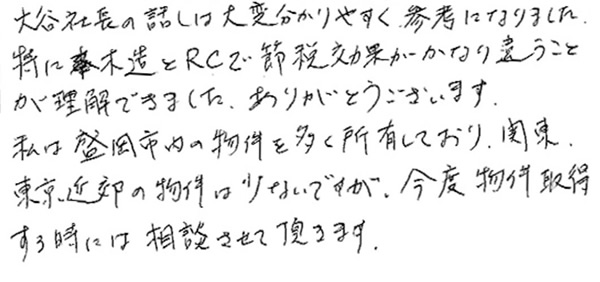 大谷社長の話しは大変分かりやすく参考になりました.
特に木造とRCで節税効果がかなり違うこと
が理解できました. ありがとうございます.
私は盛岡市内の物件を多く所有しており. 関東.
東京近郊の物件は少ないですが. 今度物件取得
する時には相談させて頂きます.